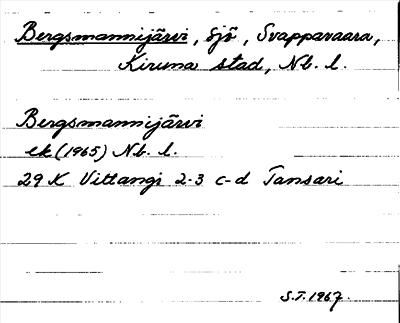 Bergsmannijärvi, sjö, Svappavaara,
Kiruna stad, Nb. l.
Bergsmannijärvi
ek (1965) Nb. l.
29 K Vittangi 2-3 c-d Tansari
S.T. 1967.